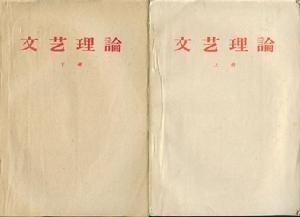 文艺理論
下册
文艺理論
上册